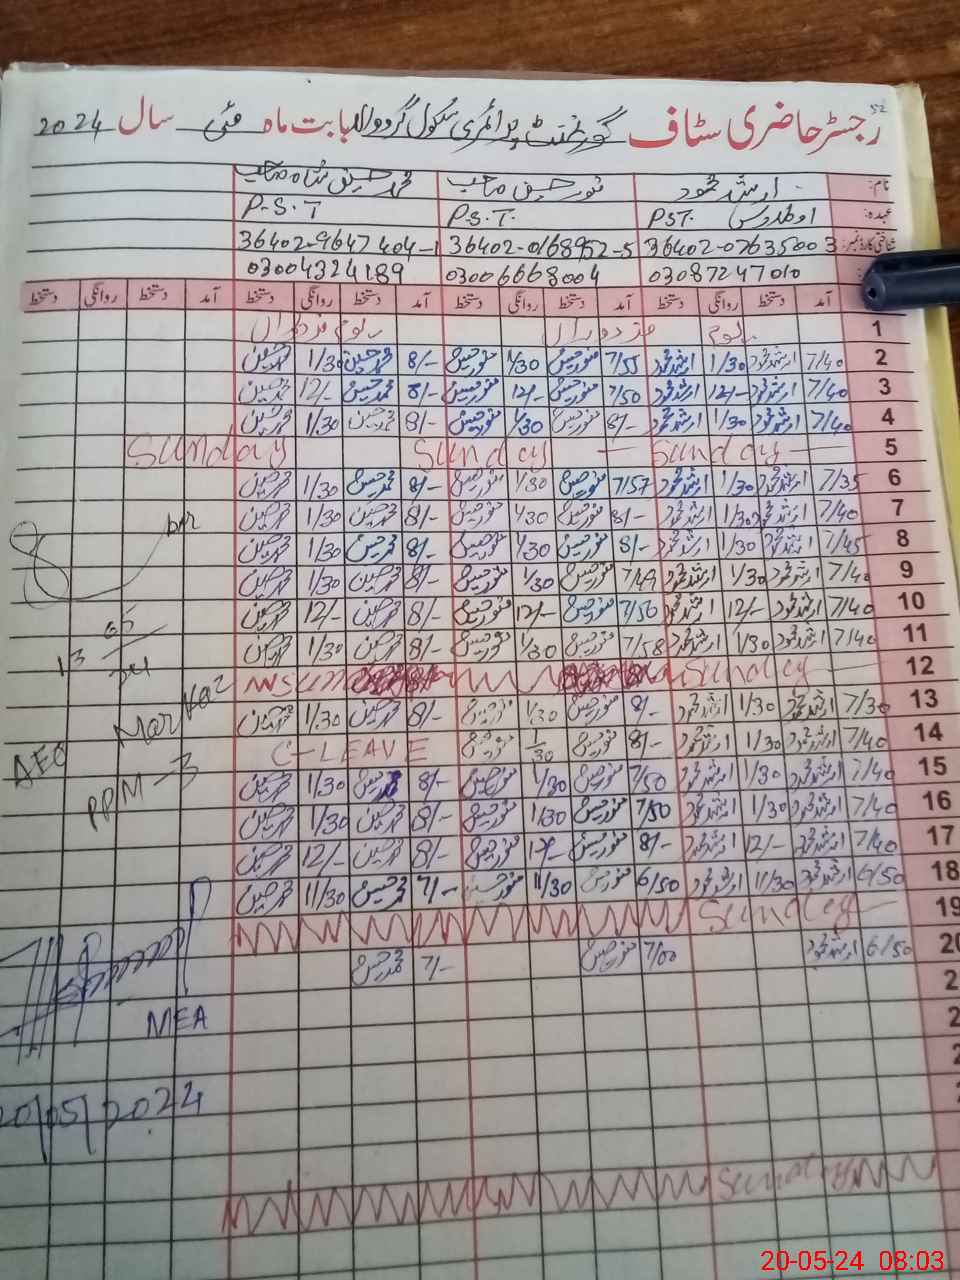 52
رجسٹر حاضری سٹاف گورنمنٹ پرائمری سکول گردوالہ بابت ماہ مئی سال 2024
نام: ارشد محمود نور حسین صاحب محمد حسین شاہ صاحب
عہدہ: PST P.S.T. P.S.T
شناختی کارڈ نمبر: 36402-0763500-3 36402-0168952-5 36402-9647404-1
03087247010 03006668004 03004324189
آمد دستخط روانگی دستخط آمد دستخط روانگی دستخط آمد دستخط روانگی دستخط آمد دستخط روانگی دستخط
1 یوم مزدوراں یوم مزدوراں
2 7/40 ارشد محمود 1/30 ارشد محمود 7/55 نور حسین 1/30 نور حسین 8/- محمد حسین 1/30 محمد حسین
3 7/40 ارشد محمود 12/- ارشد محمود 7/50 نور حسین 12/- نور حسین 8/- محمد حسین 12/- محمد حسین
4 7/40 ارشد محمود 1/30 ارشد محمود 8/- نور حسین 1/30 نور حسین 8/- محمد حسین 1/30 محمد حسین
5 Sunday Sunday Sunday
6 7/35 ارشد محمود 1/30 ارشد محمود 7/57 نور حسین 1/30 نور حسین 8/- محمد حسین 1/30 محمد حسین
7 7/40 ارشد محمود 1/30 ارشد محمود 8/- نور حسین 1/30 نور حسین 8/- محمد حسین 1/30 محمد حسین
8 7/45 ارشد محمود 1/30 ارشد محمود 8/- نور حسین 1/30 نور حسین 8/- محمد حسین 1/30 محمد حسین
9 7/40 ارشد محمود 1/30 ارشد محمود 7/49 نور حسین 1/30 نور حسین 8/- محمد حسین 1/30 محمد حسین
10 7/40 ارشد محمود 12/- ارشد محمود 7/50 نور حسین 12/- نور حسین 8/- محمد حسین 12/- محمد حسین
11 7/40 ارشد محمود 1/30 ارشد محمود 7/58 نور حسین 1/30 نور حسین 8/- محمد حسین 1/30 محمد حسین
12 Sunday
13 7/30 ارشد محمود 1/30 ارشد محمود 8/- نور حسین 1/30 نور حسین 8/- محمد حسین 1/30 محمد حسین
Markaz
14 7/40 ارشد محمود 1/30 ارشد محمود 8/- نور حسین 1/30 نور حسین C-LEAVE
AEO
15 7/40 ارشد محمود 1/30 ارشد محمود 7/50 نور حسین 1/30 نور حسین 8/- محمد حسین 1/30 محمد حسین
PPM-3
16 7/40 ارشد محمود 1/30 ارشد محمود 7/50 نور حسین 1/30 نور حسین 8/- محمد حسین 1/30 محمد حسین
17 7/40 ارشد محمود 12/- ارشد محمود 8/- نور حسین 12/- نور حسین 8/- محمد حسین 12/- محمد حسین
18 6/50 ارشد محمود 11/30 ارشد محمود 6/50 نور حسین 11/30 نور حسین 7/- محمد حسین 11/30 محمد حسین
19 Sunday
20 6/50 ارشد محمود 7/00 نور حسین 7/- محمد حسین
2
MEA
2
2
20/05/2024
Sunday
20-05-24 08:03